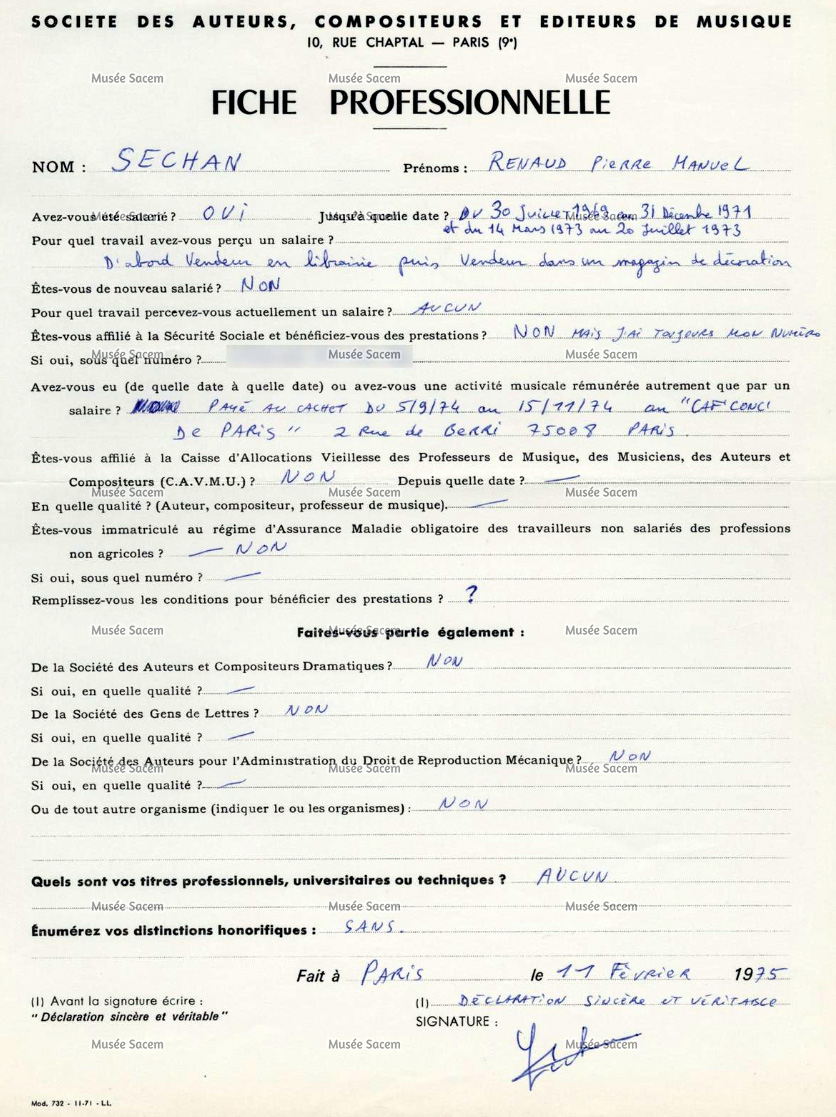 SOCIETE DES AUTEURS, COMPOSITEURS ET EDITEURS DE MUSIQUE
10, RUE CHAPTAL — PARIS (9e)
Musée Sacem Musée Sacem Musée Sacem
FICHE PROFESSIONNELLE
NOM : SECHAN Prénoms : RENAUD PIERRE MANUEL
Avez-vous été salarié ? OUI Jusqu'à quelle date ? DU 30 Juillet 1969 au 31 Décembre 1971
Musée Sacem Musée Sacem Musée Sacem
et du 14 Mars 1973 au 20 Juillet 1973
Pour quel travail avez-vous perçu un salaire ?
D'abord Vendeur en librairie puis Vendeur dans un magazin de décoration
Êtes-vous de nouveau salarié ? NON
Pour quel travail percevez-vous actuellement un salaire ? AUCUN
Êtes-vous affilié à la Sécurité Sociale et bénéficiez-vous des prestations ? NON MAIS J'AI TOUJOURS MON NUMÉRO
Si oui, sous quel numéro ?
Musée Sacem Musée Sacem Musée Sacem
Avez-vous eu (de quelle date à quelle date) ou avez-vous une activité musicale rémunérée autrement que par un
salaire ? PAYÉ AU CACHET DU 5/9/74 au 15/11/74 au "CAF'CONC'
DE PARIS" 2 Rue de BERRI 75008 PARIS.
Êtes-vous affilié à la Caisse d'Allocations Vieillesse des Professeurs de Musique, des Musiciens, des Auteurs et
Compositeurs (C.A.V.M.U.) ? NON Depuis quelle date ? —
Musée Sacem Musée Sacem Musée Sacem
En quelle qualité ? (Auteur, compositeur, professeur de musique). —
Êtes-vous immatriculé au régime d'Assurance Maladie obligatoire des travailleurs non salariés des professions
non agricoles ? — NON
Si oui, sous quel numéro ? —
Remplissez-vous les conditions pour bénéficier des prestations ? ?
Faites-vous partie également :
Musée Sacem Musée Sacem Musée Sacem
De la Société des Auteurs et Compositeurs Dramatiques ? NON
Si oui, en quelle qualité ? —
De la Société des Gens de Lettres ? NON
Si oui, en quelle qualité ? —
De la Société des Auteurs pour l'Administration du Droit de Reproduction Mécanique ? NON
Musée Sacem Musée Sacem Musée Sacem
Si oui, en quelle qualité ? —
Ou de tout autre organisme (indiquer le ou les organismes) : NON
Quels sont vos titres professionnels, universitaires ou techniques ? AUCUN
Musée Sacem Musée Sacem Musée Sacem
Énumérez vos distinctions honorifiques : SANS.
Fait à PARIS le 11 FÉVRIER 1975
(1) Avant la signature écrire : (1) DÉCLARATION SINCÈRE ET VÉRITABLE
"Déclaration sincère et véritable" SIGNATURE :
Musée Sacem Musée Sacem Musée Sacem
Mod. 732 - 11-71 - LL